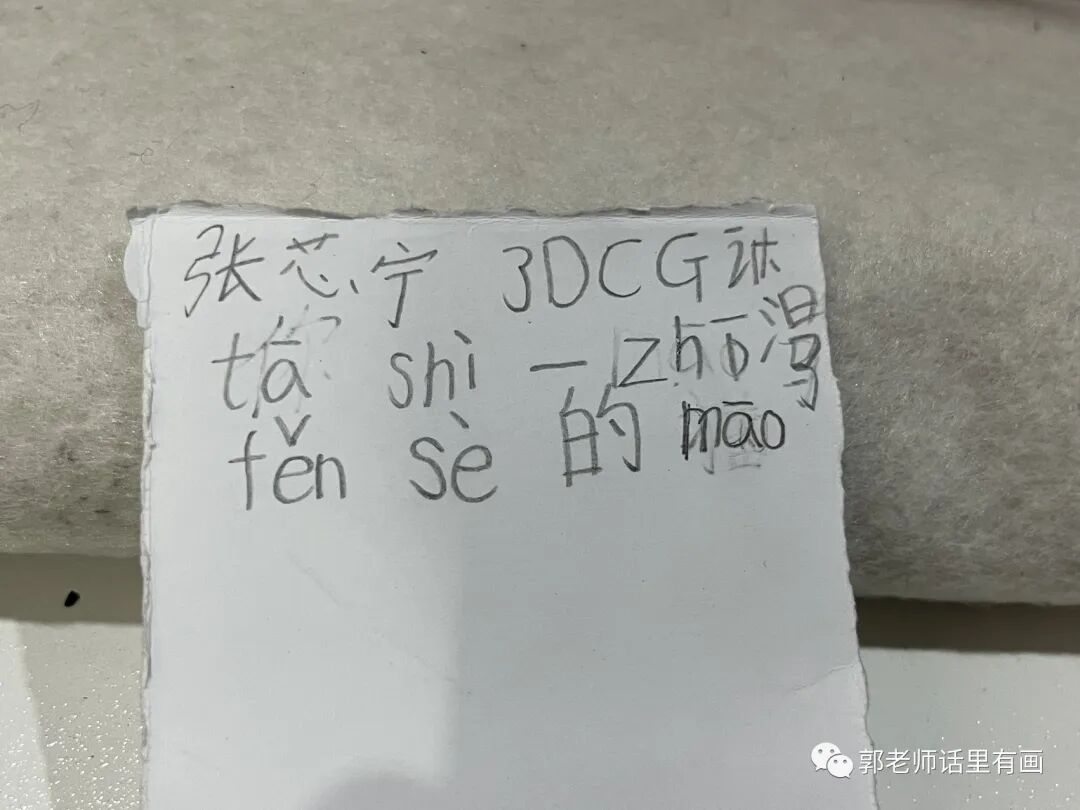 张芯宁 3DCG
tā shì 一 zhī
fěn sè 的 māo
郭老师话里有画